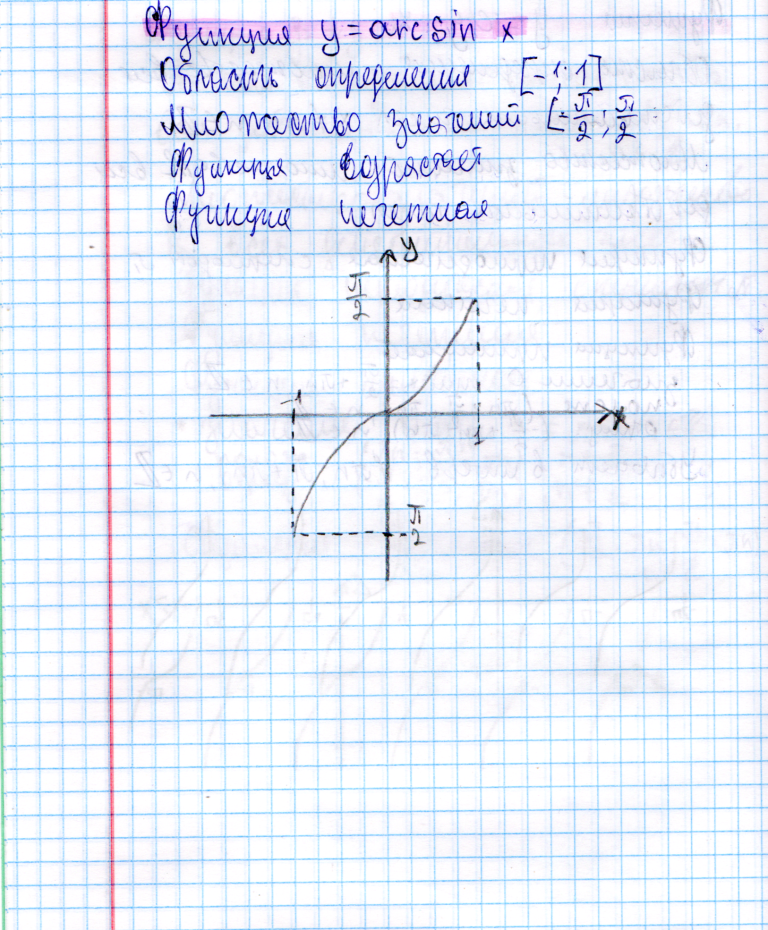 Функция y = arc sin x
Область определения [-1; 1]
Множество значений [-π/2; π/2
Функция возрастает
Функция нечетная
y
π/2
-1
x
1
π/2